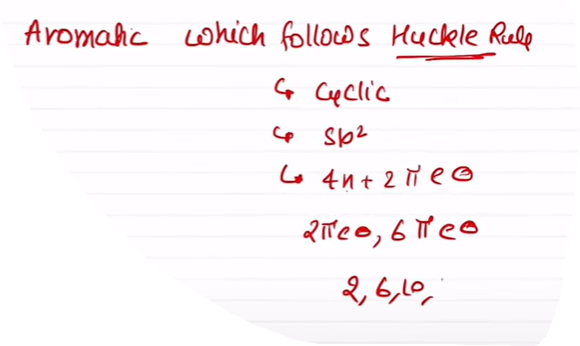 Aromatic which follows Huckle Rule
↳ Cyclic
↳ sp²
↳ 4n+2 π e⊖
2πe⊖, 6 π e⊖
2, 6, 10,